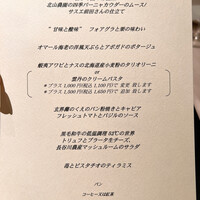 北山農園の四季バーニャカウダーのムース/
サスエ前田さんの仕立て
"甘味と酸味" フォアグラと栗の味わい
オマール海老の洋風天ぷらとアボガドのポタージュ
蝦夷アワビとナスの北海道産小麦粉のタリオリーニ
or
雲丹のクリームパスタ
※プラス 1,000円(税込 1,100円)で 変更 致します
※プラス 1,500円(税込 1,650円)で 追加 致します
玄界灘のくえのパン粉焼きとキャビア
フレッシュトマトとバジルのソース
黒毛和牛の低温調理 52℃の世界
トリュフとブラータチーズ、
長谷川農産マッシュルームのサラダ
苺とピスタチオのティラミス
パン
コーヒー又は紅茶